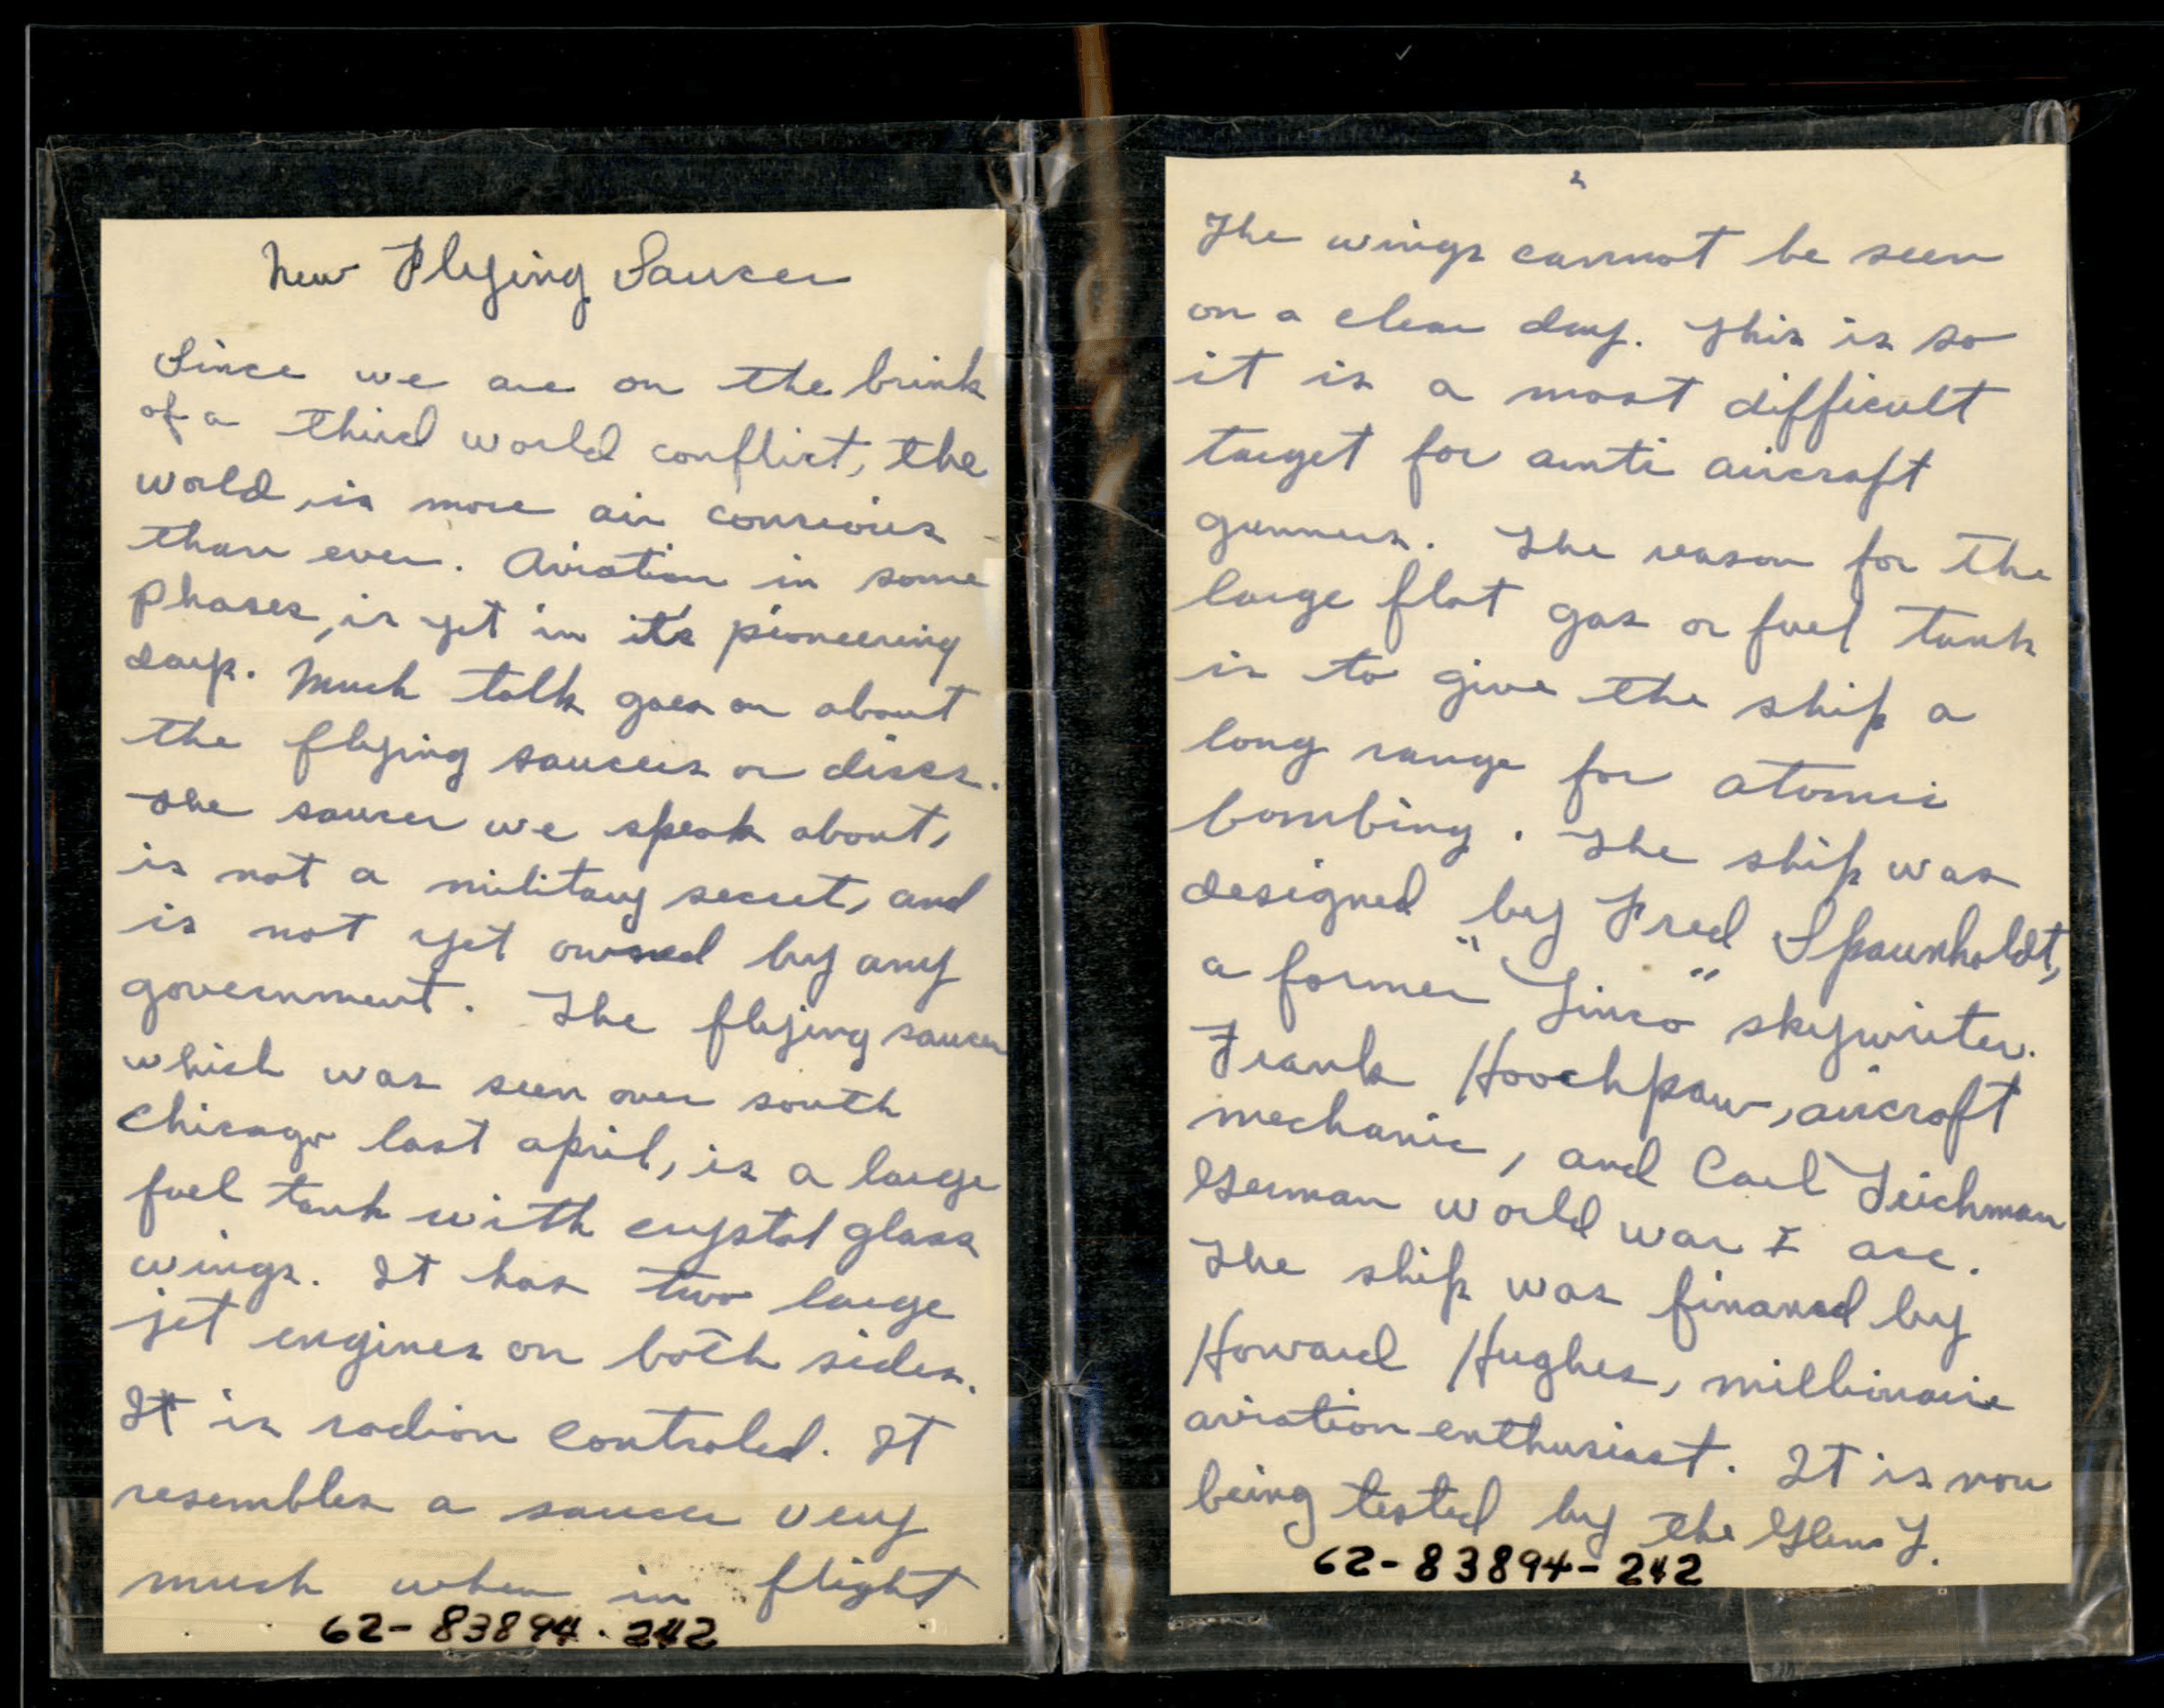 New Flying Saucer
Since we are on the brink
of a third world conflict, the
world, is more air conscious
than ever. Aviation in some
phases, is yet in it's pioneering
days. Much talk goes on about
the flying saucers or discs.
The saucer we speak about,
is not a military secret, and
is not yet owned by any
government. The flying saucer
which was seen over south
Chicago last april, is a large
fuel tank with crystal glass
wings. It has two large
jet engines on both sides.
It is radion controled. It
resembles a saucer very
much when in flight
62-83894-242
2
The wings cannot be seen
on a clear day. This is so
it is a most difficult
target for anti aircraft
gunners. The reason for the
large flat gas or fuel tank
is to give the ship a
long range for atomic
bombing. The ship was
designed by Fred
a former "Linco" skywriter.
Frank Hoochpaw, aircraft
mechanic, and Carl Teichman
German world war I ace.
The ship was financed by
Howard Hughes, millionaire
aviation enthusiast. It is now
being tested by the Glenn L.
62-83894-242